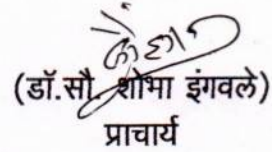 (डॉ.सौ. शोभा इंगवले)
प्राचार्य